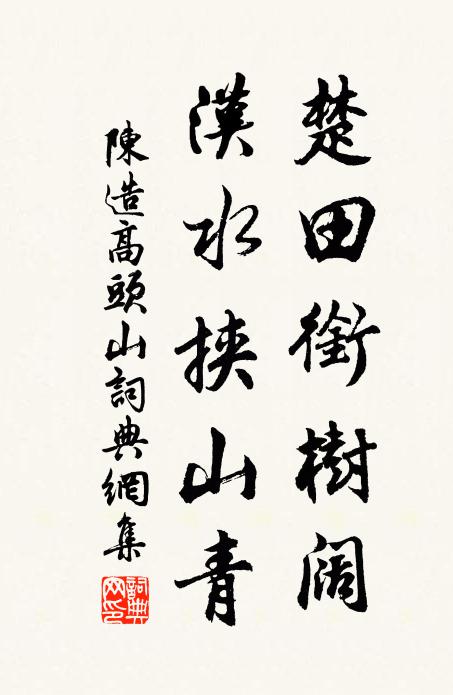 楚田銜樹闊
漢水挾山青
陳造高頭山詞典網集
詞典網印